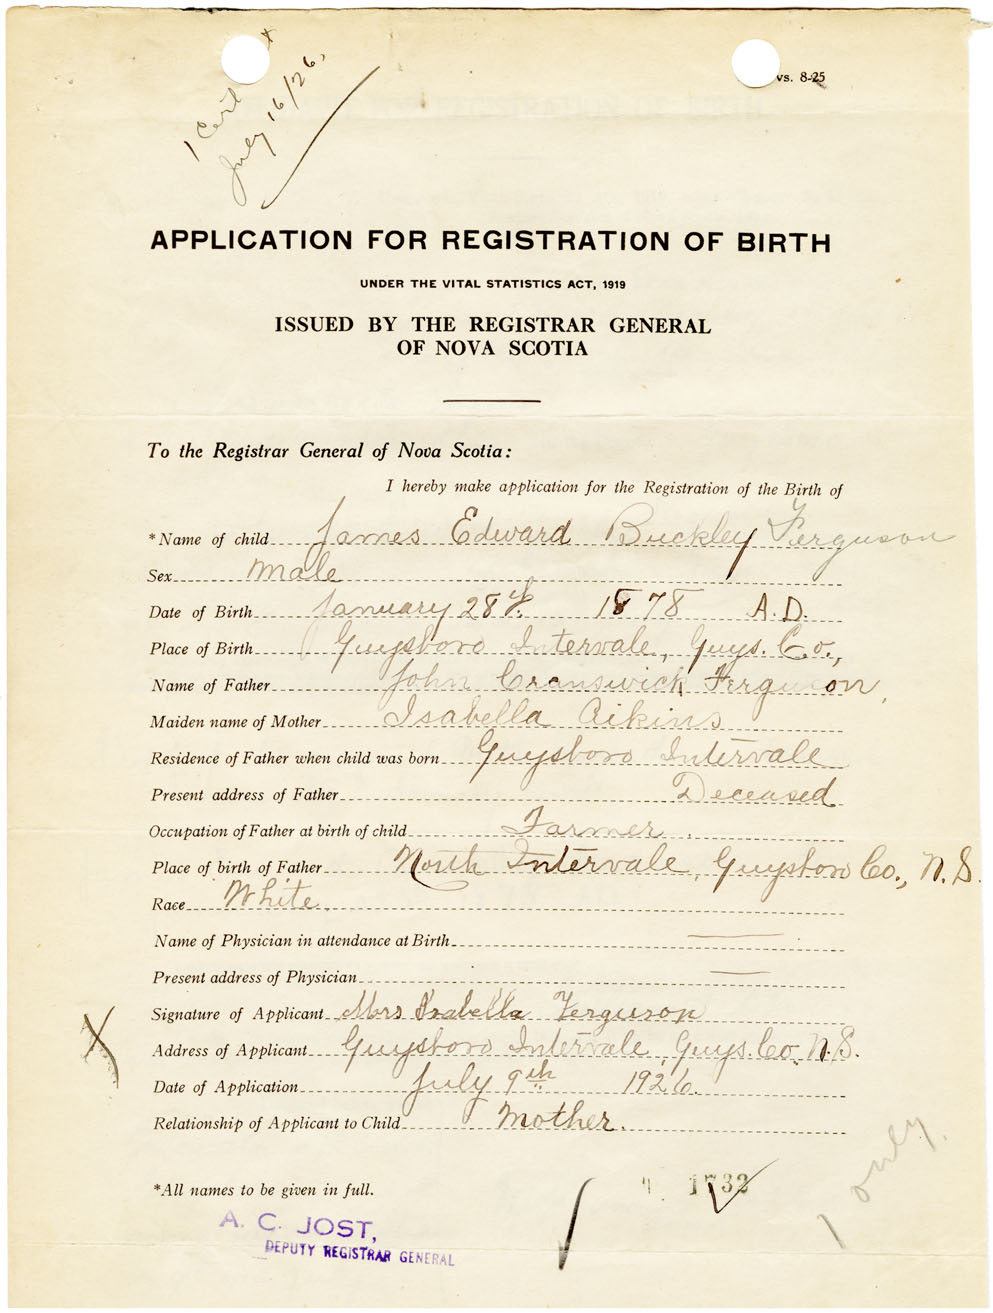 1 Cert
July 16/26.
vs. 8-25
APPLICATION FOR REGISTRATION OF BIRTH
UNDER THE VITAL STATISTICS ACT, 1919
ISSUED BY THE REGISTRAR GENERAL
OF NOVA SCOTIA
To the Registrar General of Nova Scotia:
I hereby make application for the Registration of the Birth of
*Name of child James Edward Buckley Ferguson
Sex Male
Date of Birth January 28th 1878 A.D.
Place of Birth Guysboro Intervale, Guys. Co.,
Name of Father John Cranswick Ferguson,
Maiden name of Mother Isabella Aikins
Residence of Father when child was born Guysboro Intervale
Present address of Father Deceased
Occupation of Father at birth of child Farmer.
Place of birth of Father North Intervale, Guysboro Co., N.S.
Race White
Name of Physician in attendance at Birth
Present address of Physician
Signature of Applicant Mrs Isabella Ferguson
Address of Applicant Guysboro Intervale, Guys. Co. N.S.
Date of Application July 9th 1926.
Relationship of Applicant to Child Mother.
*All names to be given in full.
1732
1 only.
A. C. JOST,
DEPUTY REGISTRAR GENERAL